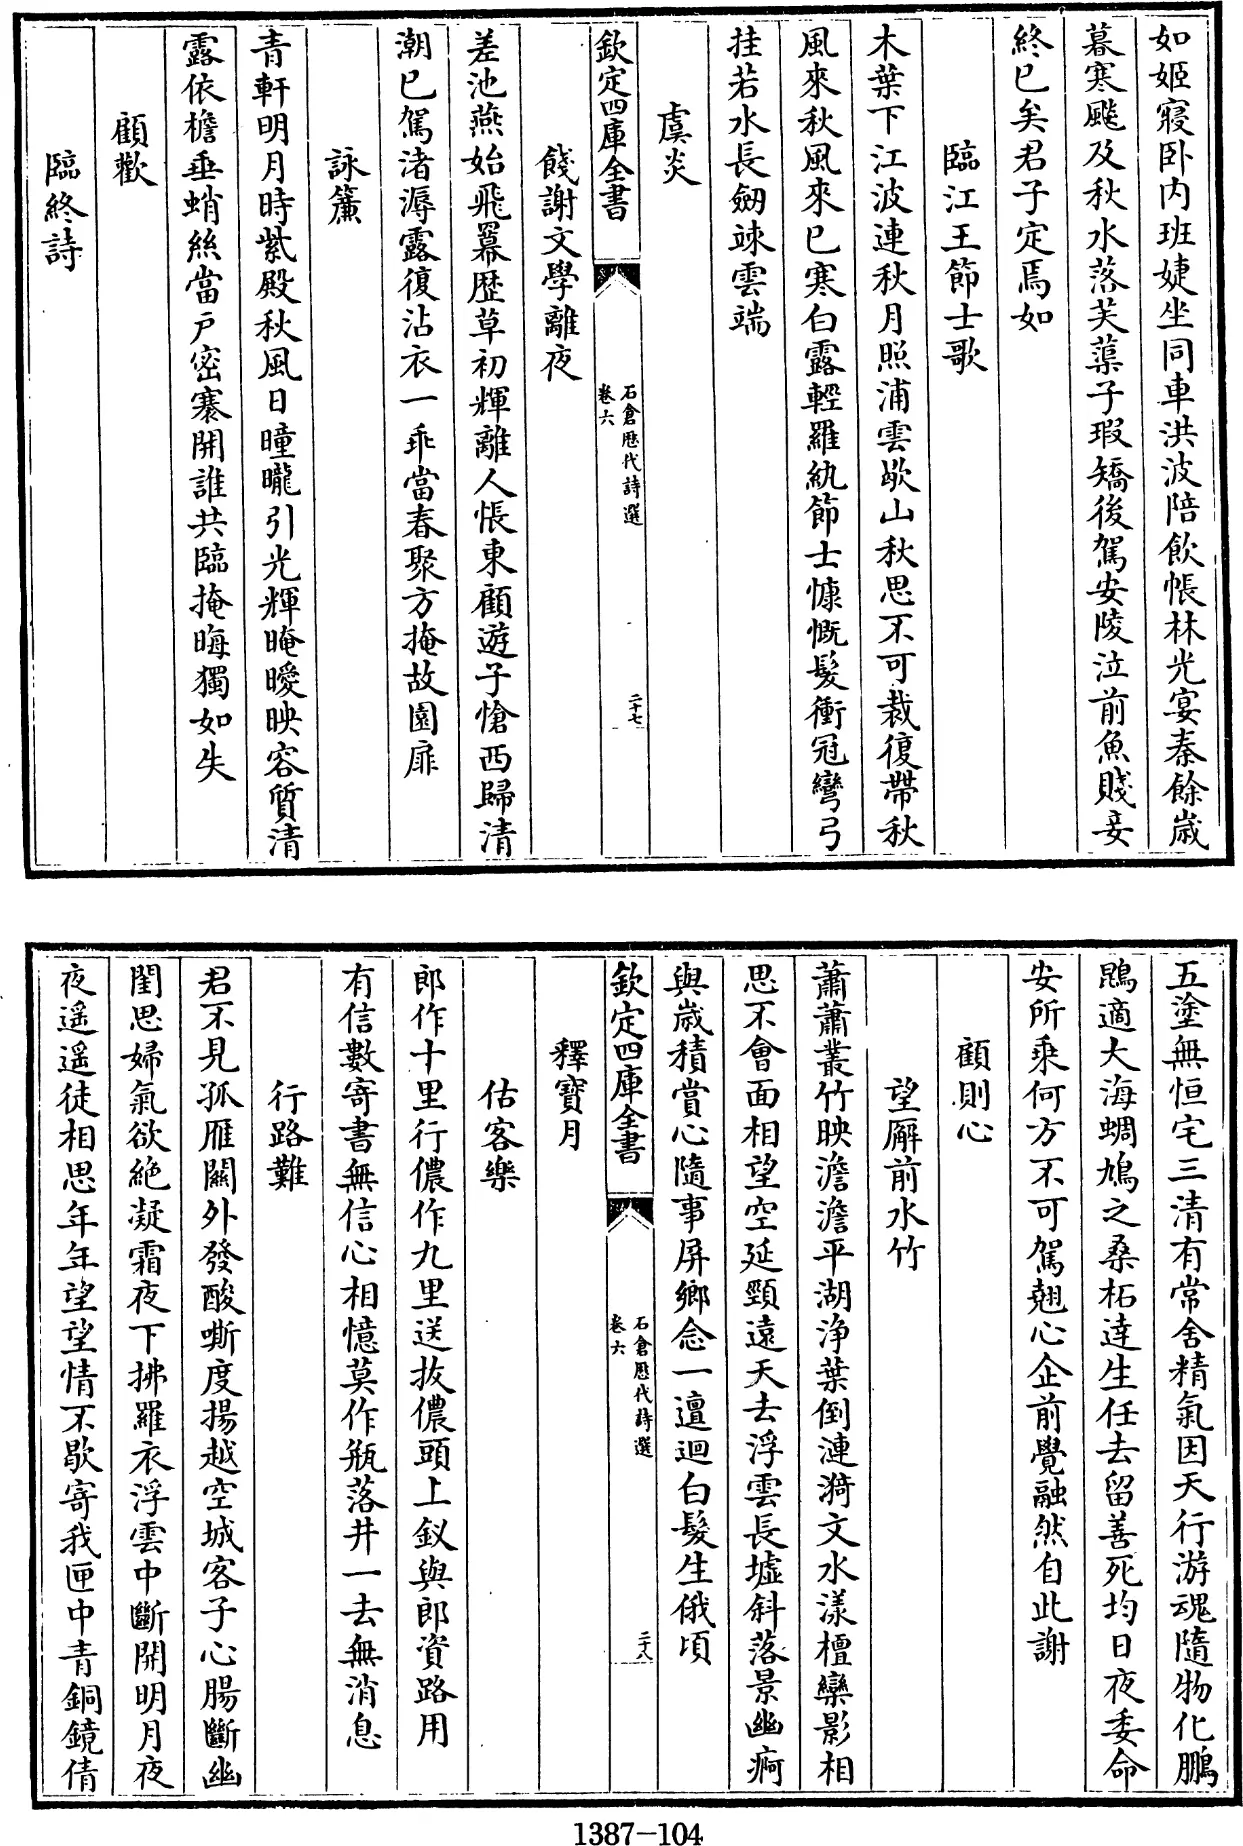 如姬寢卧内班婕坐同車洪波陪飲帳林光宴秦餘歲
暮寒飈及秋水落芙蕖子瑕矯後駕安陵泣前魚賤妾
終已矣君子定焉如
臨江王節士歌
木葉下江波連秋月照浦雲歇山秋思不可裁復帶秋
風來秋風來已寒白露輕羅紈節士慷慨髮衝冠彎弓
挂若水長劒竦雲端
虞炎
欽定四庫全書
石倉歴代詩選
卷六
二十七
餞謝文學離夜
差池燕始飛羃歴草初輝離人悵東顧遊子愴西歸清
潮已駕渚溽露復沾衣一乖當春聚方掩故園扉
詠簾
青軒明月時紫殿秋風日曈曨引光輝晻曖映容質清
露依檐垂蛸絲當户密褰開誰共臨掩晦獨如失
顧歡
臨終詩
五塗無恒宅三清有常舍精氣因天行游魂隨物化鵬
鵾適大海蜩鳩之桑柘逹生任去留善死均日夜委命
安所乘何方不可駕翹心企前覺融然自此謝
顧則心
望廨前水竹
蕭蕭叢竹映澹澹平湖浄葉倒漣漪文水漾檀欒影相
思不會面相望空延頸遠天去浮雲長墟斜落景幽痾
與歲積賞心隨事屏鄉念一邅迴白髮生俄頃
欽定四庫全書
石倉歴代詩選
卷六
二十八
釋寶月
估客樂
郎作十里行儂作九里送拔儂頭上釵與郎資路用
有信數寄書無信心相憶莫作瓶落井一去無消息
行路難
君不見孤雁關外發酸嘶度揚越空城客子心腸斷幽
閨思婦氣欲絶凝霜夜下拂羅衣浮雲中斷開明月夜
夜遥遥徒相思年年望望情不歇寄我匣中青銅鏡倩
1387-104